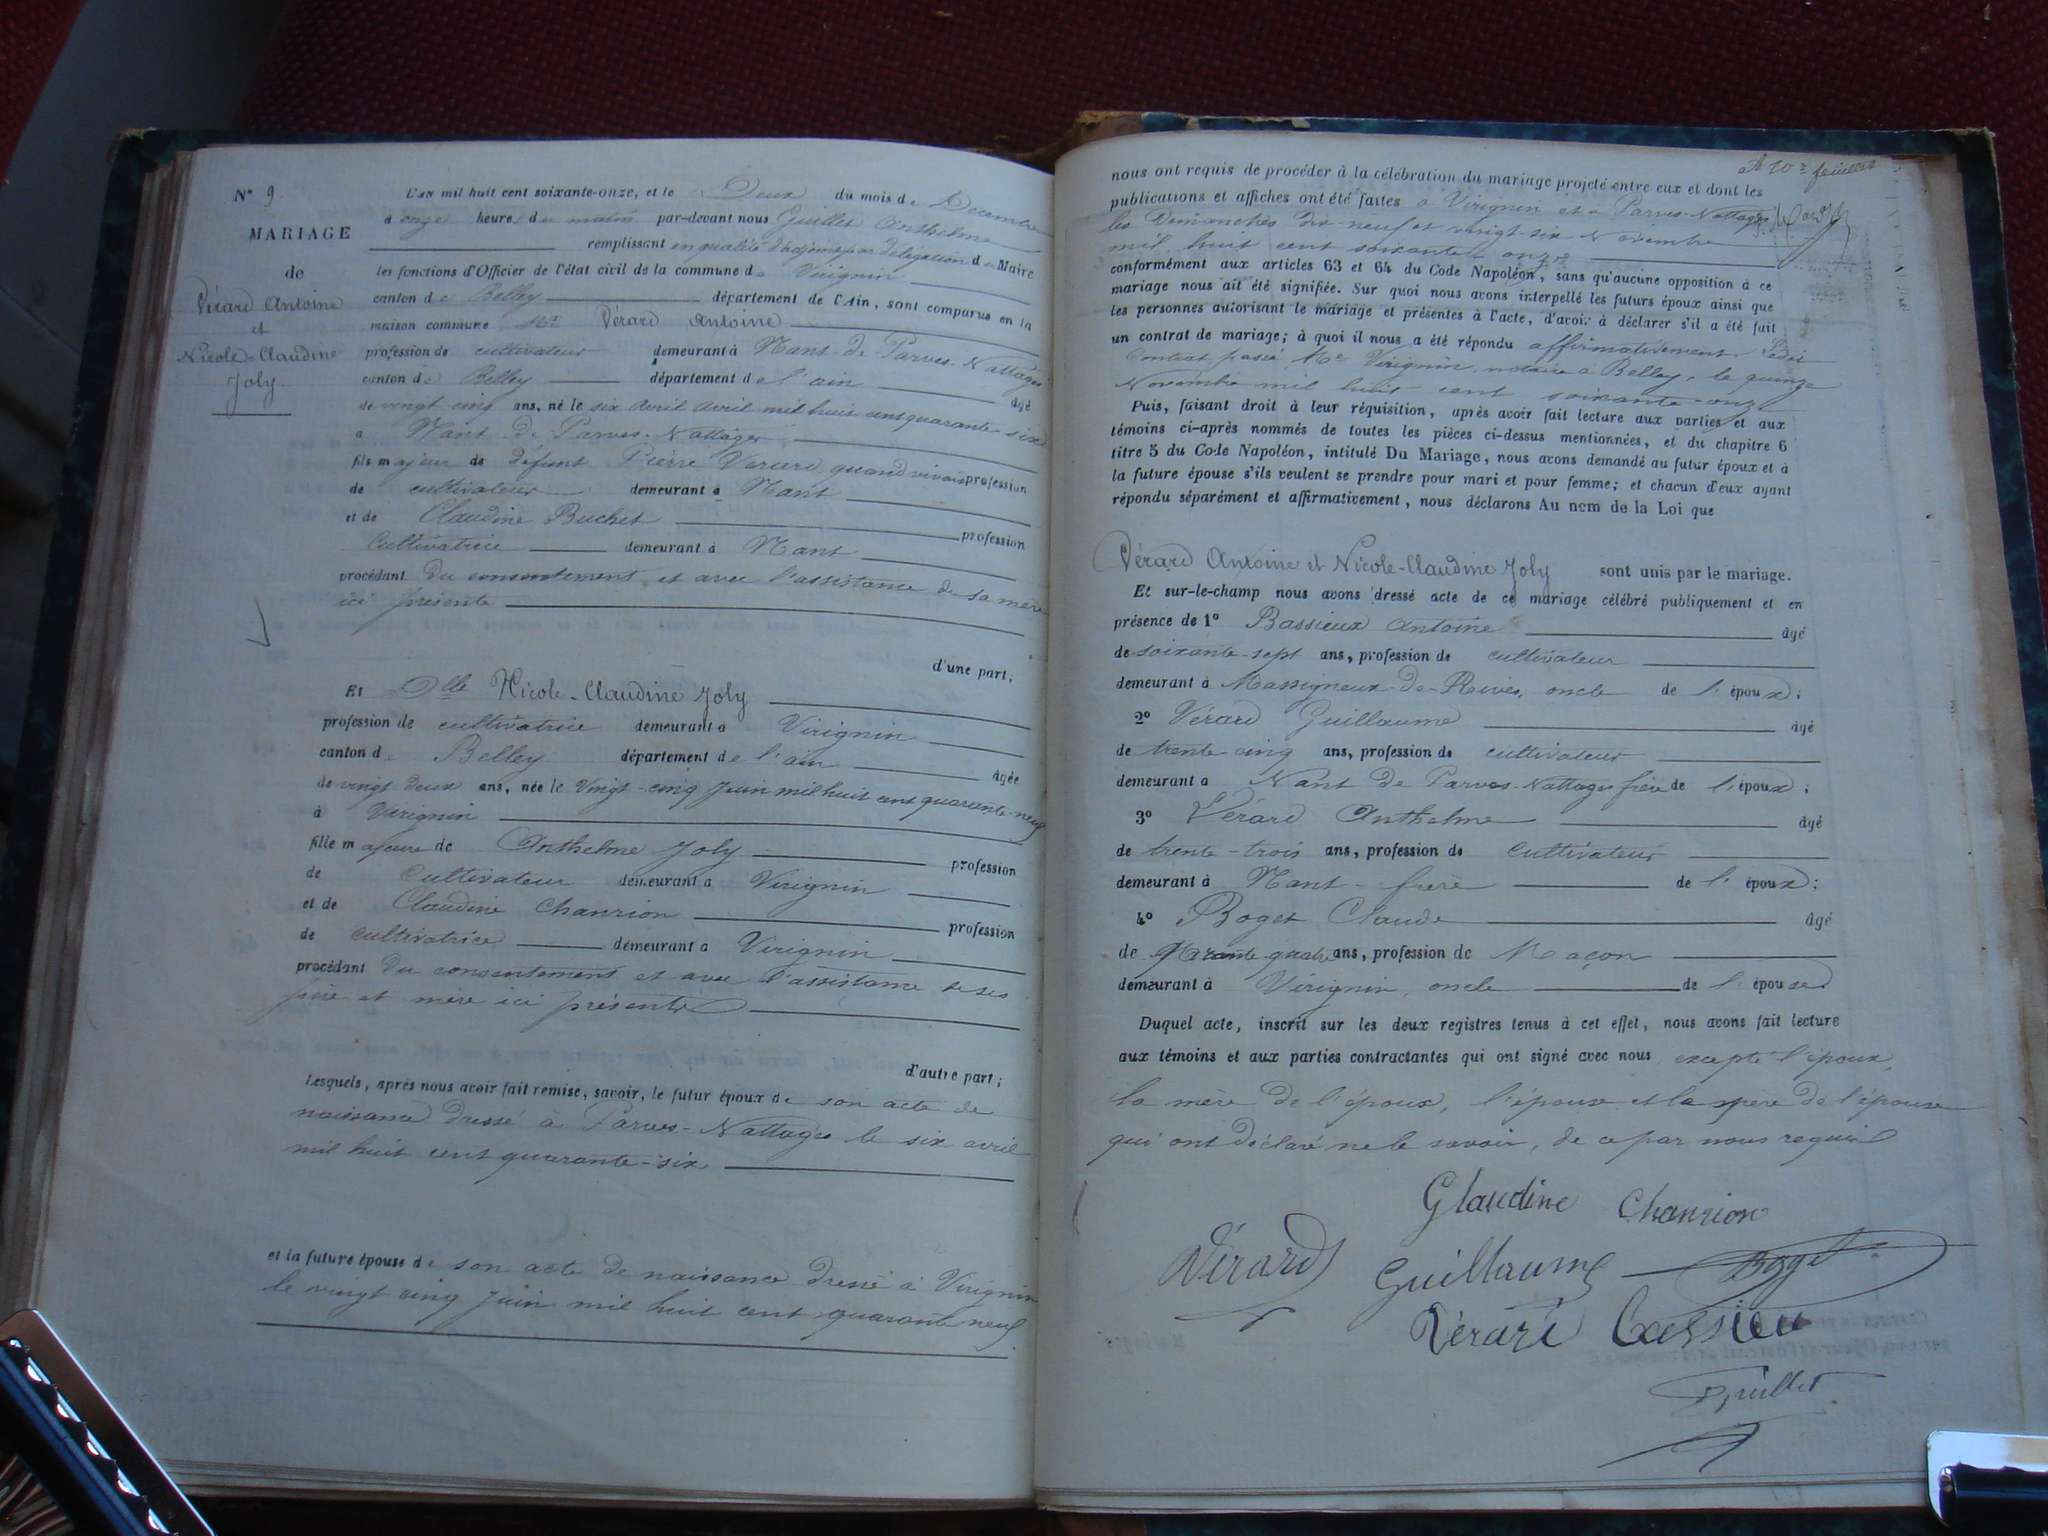 N° 9
MARIAGE
de
Vérard Antoine
et
Nicole-Claudine
Joly
L'AN mil huit cent soixante-onze, et le Deux du mois de Décembre
à onze heure du matin par-devant nous Guillet Anthelme
remplissant en qualité d'adjoint, par délégation du Maire
les fonctions d'Officier de l'état civil de la commune de Virignin
canton de Belley département de l'Ain, sont comparus en la
maison commune Mr Vérard Antoine
profession de cultivateur demeurant à Nant-de Parves-Nattages
canton de Belley département de l'ain âgé
de vingt cinq ans, né le six avril avril mil huit cent quarante six
à Nant-de Parves-Nattages
fils majeur de défunt Pierre Verard quand vivait profession
de cultivateur demeurant à Nant
et de Claudine Buchet profession
Cultivatrice demeurant à Nant
procédant du consentement et avec l'assistance de sa mère
ici présente
d'une part;
Et Dlle Nicole-Claudine Joly
profession de cultivatrice demeurant à Virignin
canton de Belley département de l'ain âgée
de vingt deux ans, née le vingt-cinq Juin mil huit cent quarante-neuf
à Virignin
fille majeure de Anthelme Joly profession
de Cultivateur demeurant à Virignin
et de Claudine Chanrion profession
de cultivatrice demeurant à Virignin
procédant du consentement et avec l'assistance de ses
père et mère ici présents
d'autre part;
Lesquels, après nous avoir fait remise, savoir, le futur époux de son acte de
naissance dressé à Parves-Nattages le six avril
mil huit cent quarante-six
et la future épouse de son acte de naissance dressé à Virignin
le vingt cinq Juin mil huit cent quarante neuf
feuillet
nous ont requis de procéder à la célébration du mariage projeté entre eux et dont les
publications et affiches ont été faites à Virignin et à Parves-Nattages
les Dimanches dix-neuf et vingt-six Novembre
mil huit cent soixante onze
conformément aux articles 63 et 64 du Code Napoléon, sans qu'aucune opposition à ce
mariage nous ait été signifiée. Sur quoi nous avons interpellé les futurs époux ainsi que
les personnes autorisant le mariage et présentes à l'acte, d'avoir à déclarer s'il a été fait
un contrat de mariage; à quoi il nous a été répondu affirmativement. Ledit
Contrat passé Me Virignin, notaire à Belley, le quinze
Novembre mil huit cent soixante-onze
Puis, faisant droit à leur réquisition, après avoir fait lecture aux parties et aux
témoins ci-après nommés de toutes les pièces ci-dessus mentionnées, et du chapitre 6
titre 5 du Code Napoléon, intitulé Du Mariage, nous avons demandé au futur époux et à
la future épouse s'ils veulent se prendre pour mari et pour femme; et chacun d'eux ayant
répondu séparément et affirmativement, nous déclarons Au nom de la Loi que
Vérard Antoine et Nicole-Claudine Joly sont unis par le mariage.
Et sur-le-champ nous avons dressé acte de ce mariage célébré publiquement et en
présence de 1° Bassieux Antoine âgé
de soixante-sept ans, profession de cultivateur
demeurant à Massigneux-de-Rives, oncle de l'époux;
2° Vérard Guillaume âgé
de trente cinq ans, profession de cultivateur
demeurant à Nant de Parves-Nattages frère de l'époux;
3° Vérard Anthelme âgé
de trente-trois ans, profession de cultivateur
demeurant à Nant-frère de l'époux;
4° Boget Claude âgé
de quarante quatre ans, profession de Maçon
demeurant à Virignin, oncle de l'épouse
Duquel acte, inscrit sur les deux registres tenus à cet effet, nous avons fait lecture
aux témoins et aux parties contractantes qui ont signé avec nous excepté l'époux,
la mère de l'époux, l'épouse et la père de l'épouse
qui ont déclaré ne le savoir, de ce par nous requis
Glaudine Chanrion
Vérard Guillaume Boget
Vérard Bassieu
Guillet